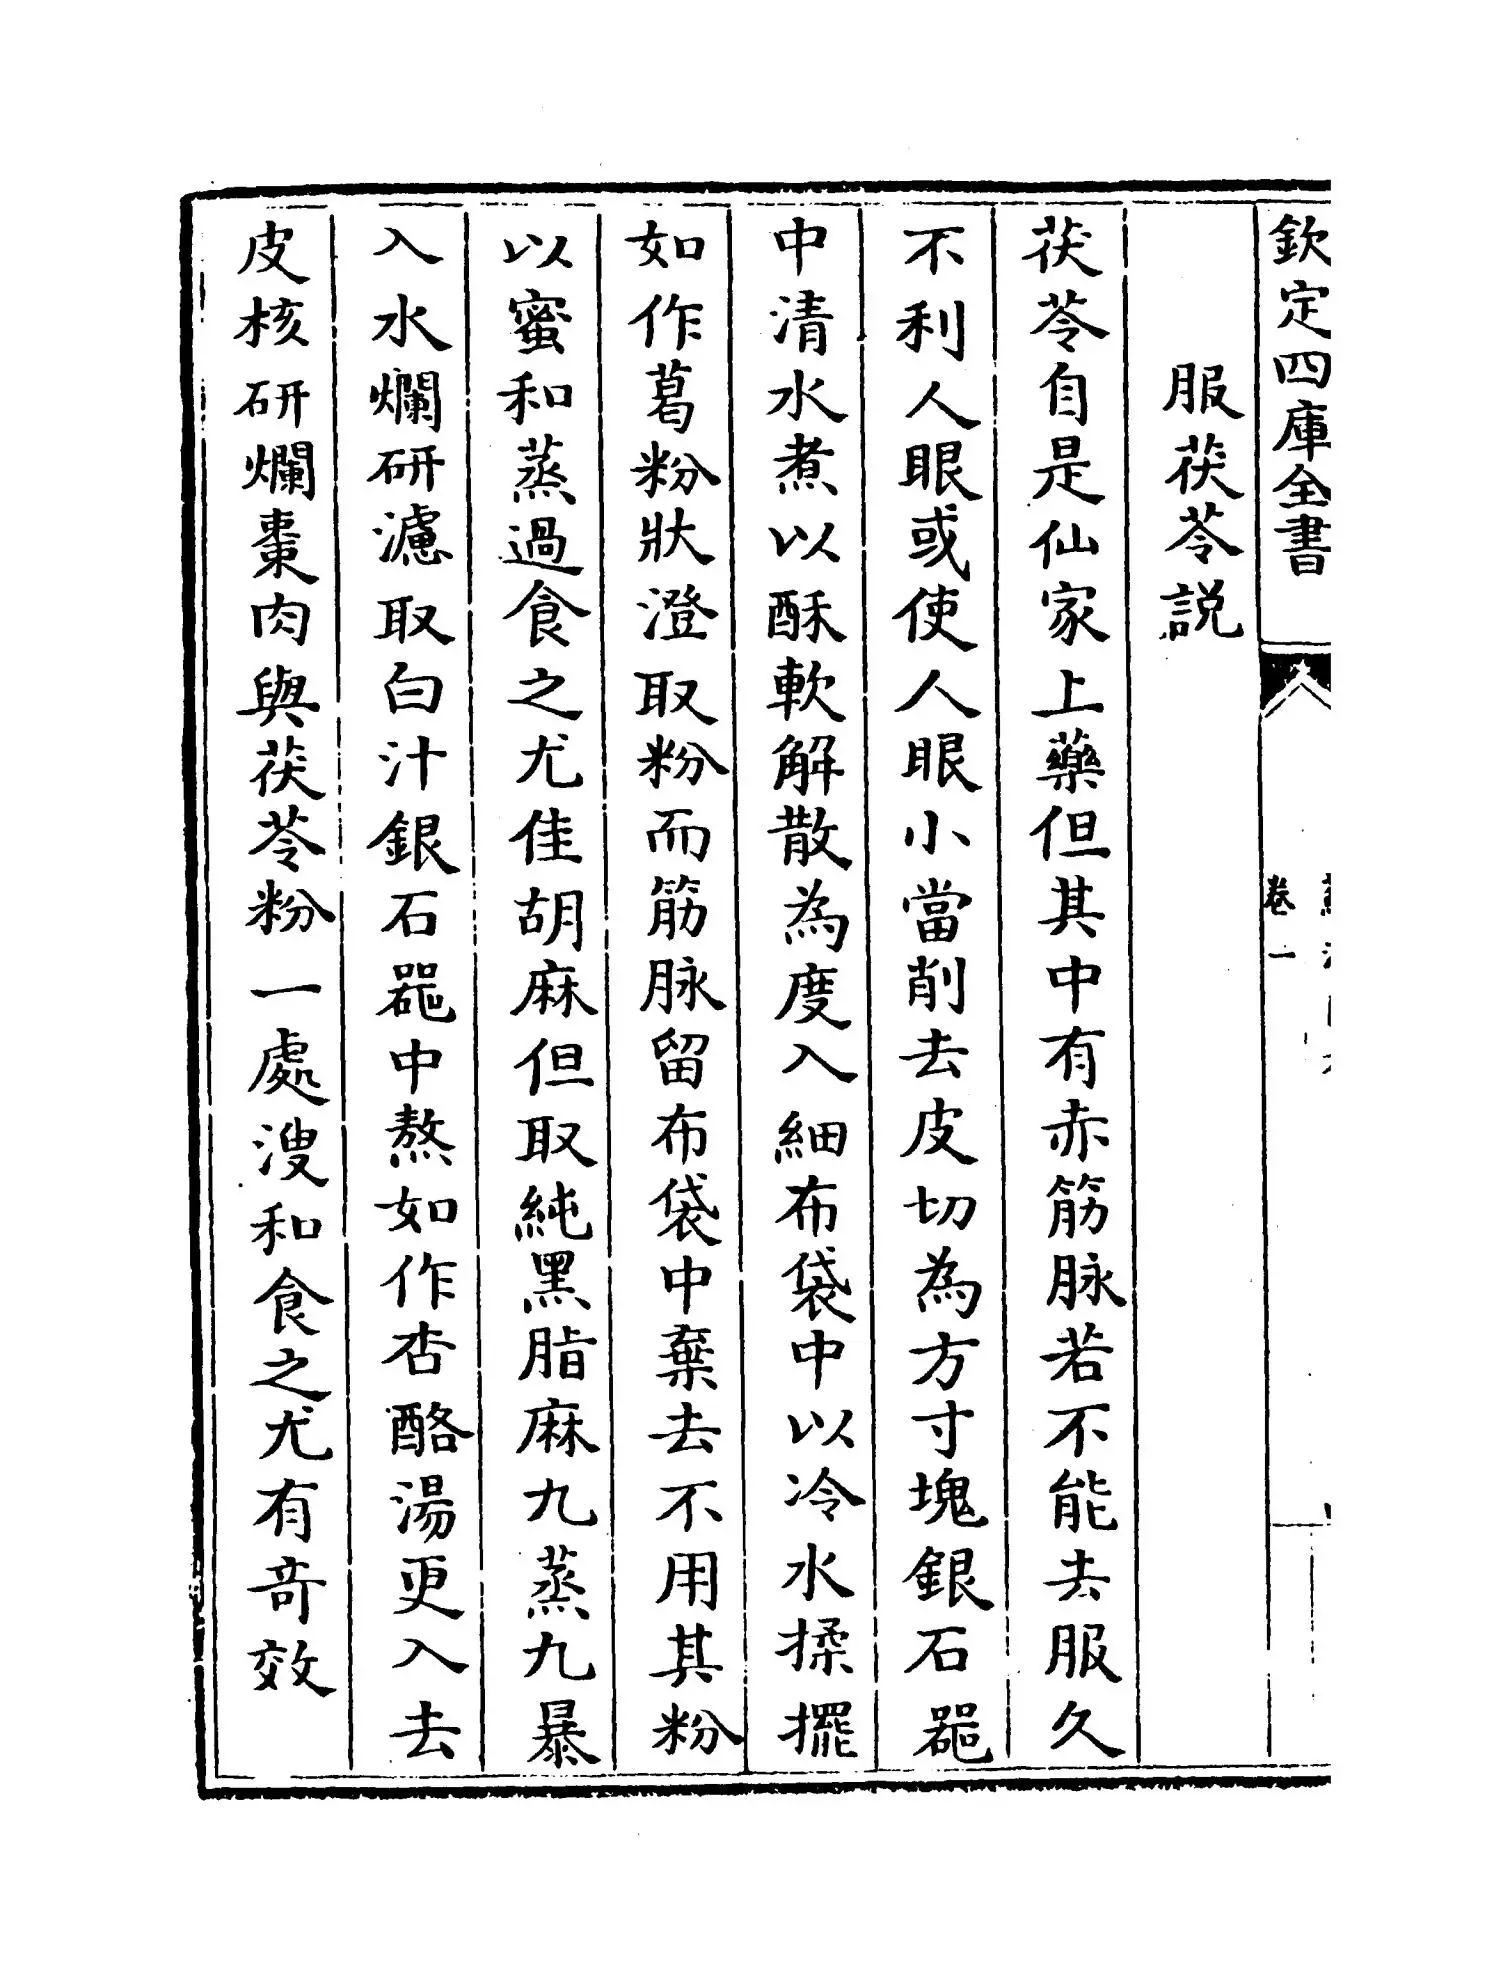 欽定四庫全書
卷一
服茯苓說
茯苓自是仙家上藥但其中有赤筋脉若不能去服久
不利人眼或使人眼小當削去皮切為方寸塊銀石器
中清水煮以酥軟解散為度入細布袋中以冷水揉擺
如作葛粉狀澄取粉而筋脉留布袋中棄去不用其粉
以蜜和蒸過食之尤佳胡麻但取純黑脂麻九蒸九暴
入水爛研濾取白汁銀石器中熬如作杏酪湯更入去
皮核研爛棗肉與茯苓粉一處溲和食之尤有奇效